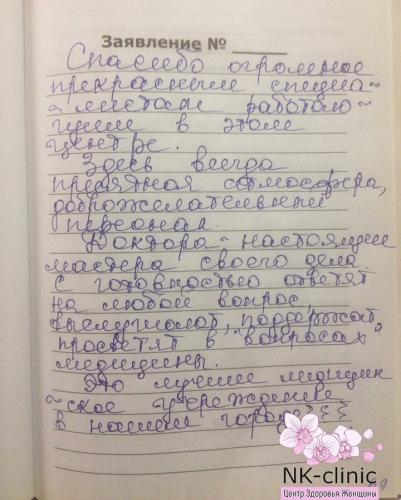 Заявление №
Спасибо огромное
прекрасным специа-
-листам работаю-
щим в этом
центре.
Здесь всегда
приятная атмосфера,
доброжелательный
персонал.
Доктора - настоящие
мастера своего дела
с готовностью ответят
на любой вопрос,
выслушают, поддержат,
просветят в вопросах
медицины.
Это лучшее медицин
-ское учреждение
в нашем городе!!!
NK-clinic
Центр Здоровья Женщины